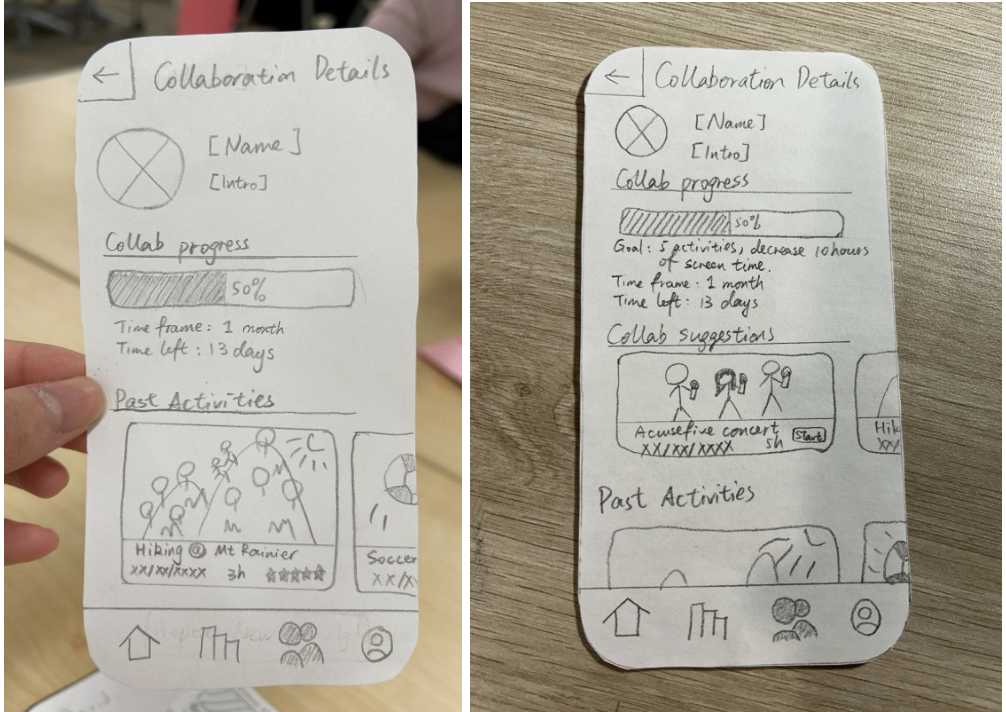 Collaboration Details
[Name]
[Intro]
Collab progress
50%
Time frame: 1 month
Time left: 13 days
Past Activities
Hiking @ Mt Rainier
XX/XX/XXXX 3h
Soccer
XX/X
Collaboration Details
[Name]
[Intro]
Collab progress
50%
Goal: 5 activities, decrease 10 hours
of screen time.
Time frame: 1 month
Time left: 13 days
Collab suggestions
Acusefive concert
XX/XX/XXXX 5h Start
Hik
XX/
Past Activities